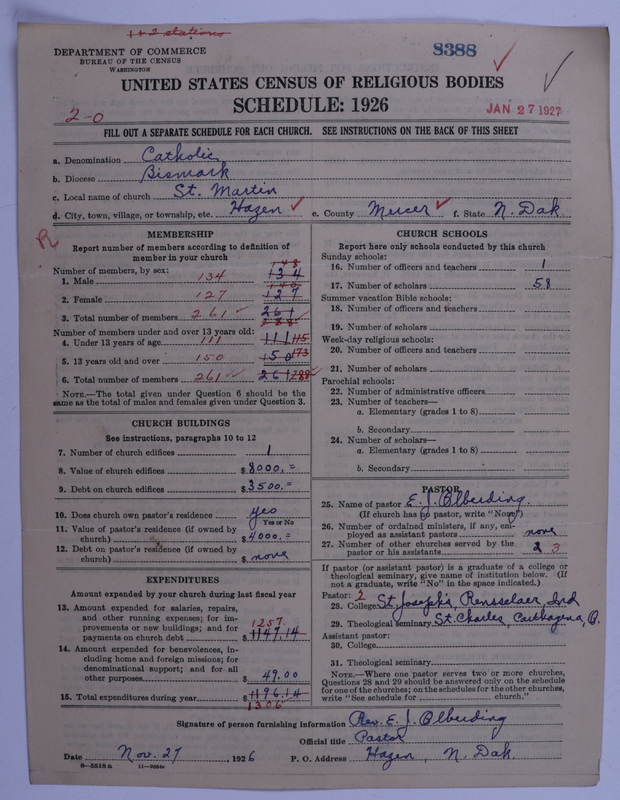 1 + 2 stations
DEPARTMENT OF COMMERCE
BUREAU OF THE CENSUS
WASHINGTON
8388
UNITED STATES CENSUS OF RELIGIOUS BODIES
SCHEDULE: 1926
2-0
JAN 27 1927
FILL OUT A SEPARATE SCHEDULE FOR EACH CHURCH. SEE INSTRUCTIONS ON THE BACK OF THIS SHEET
a. Denomination Catholic
b. Diocese Bismark
c. Local name of church St. Martin
d. City, town, village, or township, etc. Hazen e. County Mercer f. State N. Dak.
R
MEMBERSHIP
Report number of members according to definition of
member in your church
Number of members, by sex:
148
1. Male 134 134
140
2. Female 127 127
3. Total number of members 261 261
288
Number of members under and over 13 years old:
4. Under 13 years of age 111 111 115
5. 13 years old and over 150 150 173
6. Total number of members 261 261 288
NOTE.—The total given under Question 6 should be the
same as the total of males and females given under Question 3.
CHURCH BUILDINGS
See instructions, paragraphs 10 to 12
7. Number of church edifices 1
8. Value of church edifices $ 8000.=
9. Debt on church edifices $ 3500.=
10. Does church own pastor's residence yes
Yes or No
11. Value of pastor's residence (if owned by
church) $ 4000.=
12. Debt on pastor's residence (if owned by
church) $ none
EXPENDITURES
Amount expended by your church during last fiscal year
13. Amount expended for salaries, repairs,
and other running expenses; for im-
provements or new buildings; and for
payments on church debt 1257. $ 1147.14
14. Amount expended for benevolences, in-
cluding home and foreign missions; for
denominational support; and for all
other purposes $ 49.00
15. Total expenditures during year $ 1196.14
1306
CHURCH SCHOOLS
Report here only schools conducted by this church
Sunday schools:
16. Number of officers and teachers 1
17. Number of scholars 58
Summer vacation Bible schools:
18. Number of officers and teachers
19. Number of scholars
Week-day religious schools:
20. Number of officers and teachers
21. Number of scholars
Parochial schools:
22. Number of administrative officers
23. Number of teachers—
a. Elementary (grades 1 to 8)
b. Secondary
24. Number of scholars—
a. Elementary (grades 1 to 8)
b. Secondary
PASTOR
25. Name of pastor E. J. Olberding
(If church has no pastor, write "None")
26. Number of ordained ministers, if any, em-
ployed as assistant pastors none
27. Number of other churches served by the
pastor or his assistants 2 3
If pastor (or assistant pastor) is a graduate of a college or
theological seminary, give name of institution below. (If
not a graduate, write "No" in the space indicated.)
Pastor: 2
28. College St. Joseph's, Rensselaer, Ind
29. Theological seminary St. Charles, Carthagena, O.
Assistant pastor:
30. College
31. Theological seminary
NOTE.—Where one pastor serves two or more churches,
Questions 28 and 29 should be answered only on the schedule
for one of the churches; on the schedules for the other churches,
write "See schedule for church."
Signature of person furnishing information Rev. E. J. Olberding
Official title Pastor
Date Nov. 27, 1926 P. O. Address Hazen, N. Dak.
8—5518 a 11—9054c